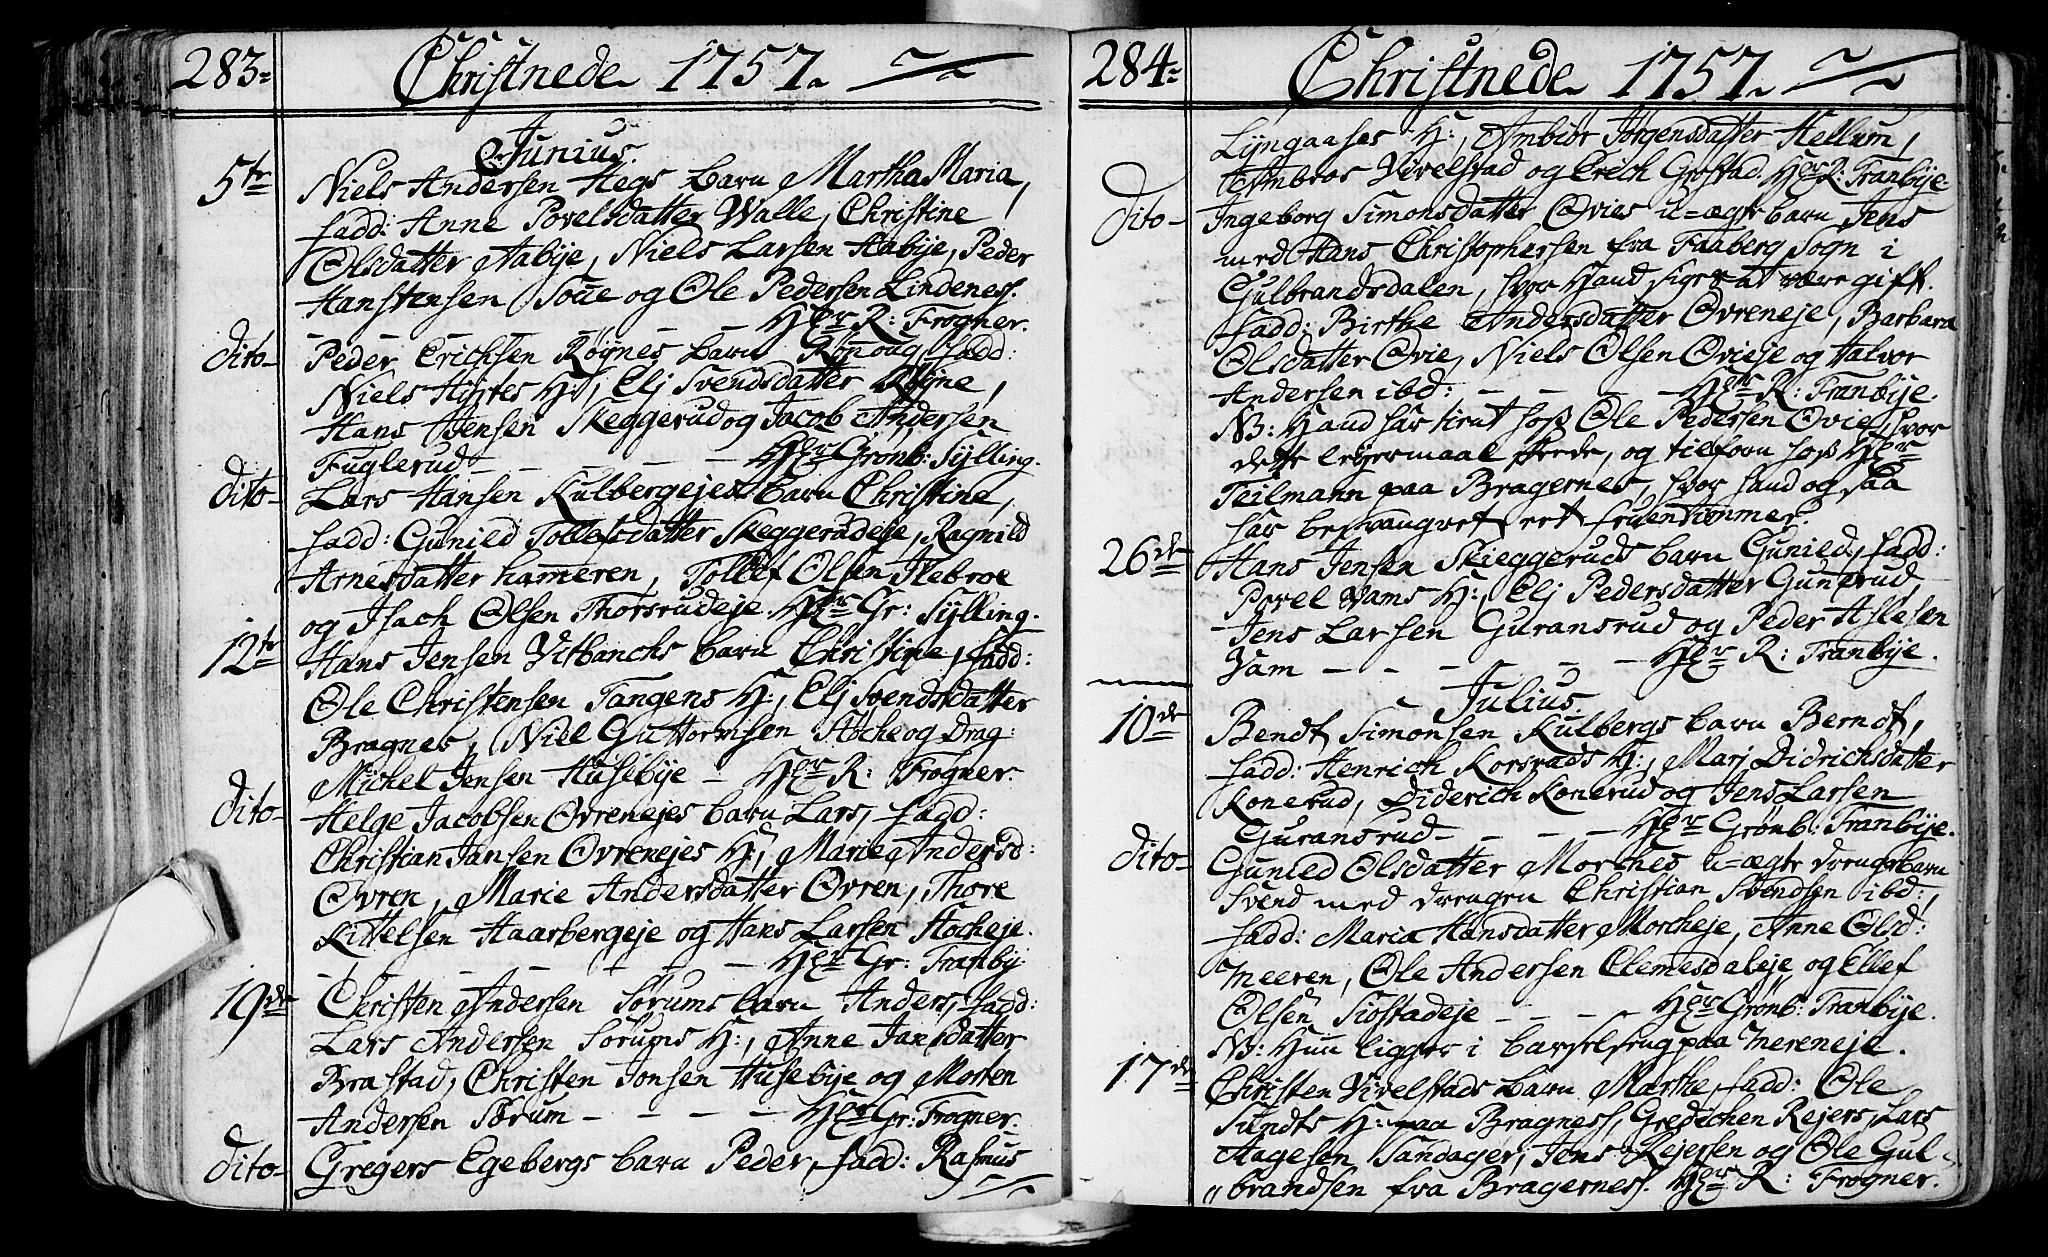 283.
Christnede 1757.
Junius.
5te Niels Andersen Hegs barn Martha Maria,
fadd: Anne Povelsdatter Walle, Christine
Olsdatter Aabije, Niels Larsen Aabije, Peder
Hanstensen Toue og Ole Pedersen Lindeness.
- - - - - Her R: Frogner.
dito- Peder Erichsen Røynes barn Rønnoug, fadd:
Niels H: , Elj Svendsdatter Røyne,
Hans Jensen Skeggerud og Jacob Andersen
Fuglerud - - - - Her Grønb: Sylling.
dito- Lars Hansen Kulbergejes barn Christine,
fadd: Gunild Tollefsdatter Skeggerudeje, Ragnild
Arnesdatter hameren, Tollef Olsen Ilebroe
og Isach Olsen Thorsrudeje. Her Gr: Sylling.
12te Hans Jensen Vitbanchs barn Christine, fadd:
Ole Christensen Tangens H:, Elj Svendsdatter
Bragnes, Niel Guttormsen Hoche og Drag:
Michel Jensen Husebije - Her R: Frogner.
dito- Helge Jacobsen Øvrenejes barn Lars, fadd:
Christian Jansen Øvrenejes H:, Marie Andersd:
Øvren, Marie Andersdatter Øvren, Thore
Kittelsen Haarbergeje og Hans Larsen Hocheje.
- - - - - - Her Gr: Tranby.
19de Christen Andersen Sørums barn Anders, fadd:
Lars Andersen Sørums H:, Anne Jansdatter
Brastad, Christen Jonsen Husebije og Morten
Andersen Sørum - - - - Her Gr: Frogner.
dito- Gregers Egebergs barn Peder, fadd: Rasmus
284.
Christnede 1757.
Lyngaases H:, Ambiør Jørgensdatter Hellum,
Ambros Vivelstad og Erich Gostad. Her R: Tranbije.
dito- Ingeborg Simonsdatter Ovies u=ægte barn Jens
med Hans Christophersen fra Faaberg Sogn i
Gulbrandsdalen, hvor hand siges at være gift.
fadd: Birthe Andersdatter Øvreneje, Barbara
Olsdatter Ovie, Niels Olsen Ovieje og Halvor
Andersen ibd: - - - - Her R: Tranbije.
NB: Hand har tient hoss Ole Pedersen Ovie, hvor
dette leyermaal skeede, og tilforn hoss Her
Teilmann paa Bragernes, hvor hand og saa
har besvangret ret fruentimmer.
26de Hans Jensen Skieggeruds barn Gunild, fadd:
Povel Vams H:, Elj Pedersdatter Guntrud
Jens Larsen Guransrud og Peder Aslesen
Vam - - - - - Her R: Tranbije.
Julius.
10de Bendt Simonsen Kulbergs barn Berndt,
fadd: Henrich Korsrads H:, Marj Didrichsdatter
Konerud, Diderich Konerud og Jens Larsen
Guransrud - - - - Her Grønb: Tranbije.
dito- Gunild Olsdatter Morches u=ægte drengebarn
Svend med drengen Christian Svendsen ibd:,
fadd: Maria Hansdatter Morcheje, Anne Olsd:
Meeren, Ole Andersen Clemesdaleje og Ellef
Olsen Siøstadeje - - - - Her Grønb: Tranbije.
NB: Hun ligger i barselseng paa Mereneje.
17de Christen Vivelstads barn Marthe, fadd: Ole
Sundts H: paa Bragness, Gredichen Rejers, Lars
Aagesen Sandager, Jens Rejersen og Ole Gul-
brandsen fra Bragerness. Her R: Frogner.